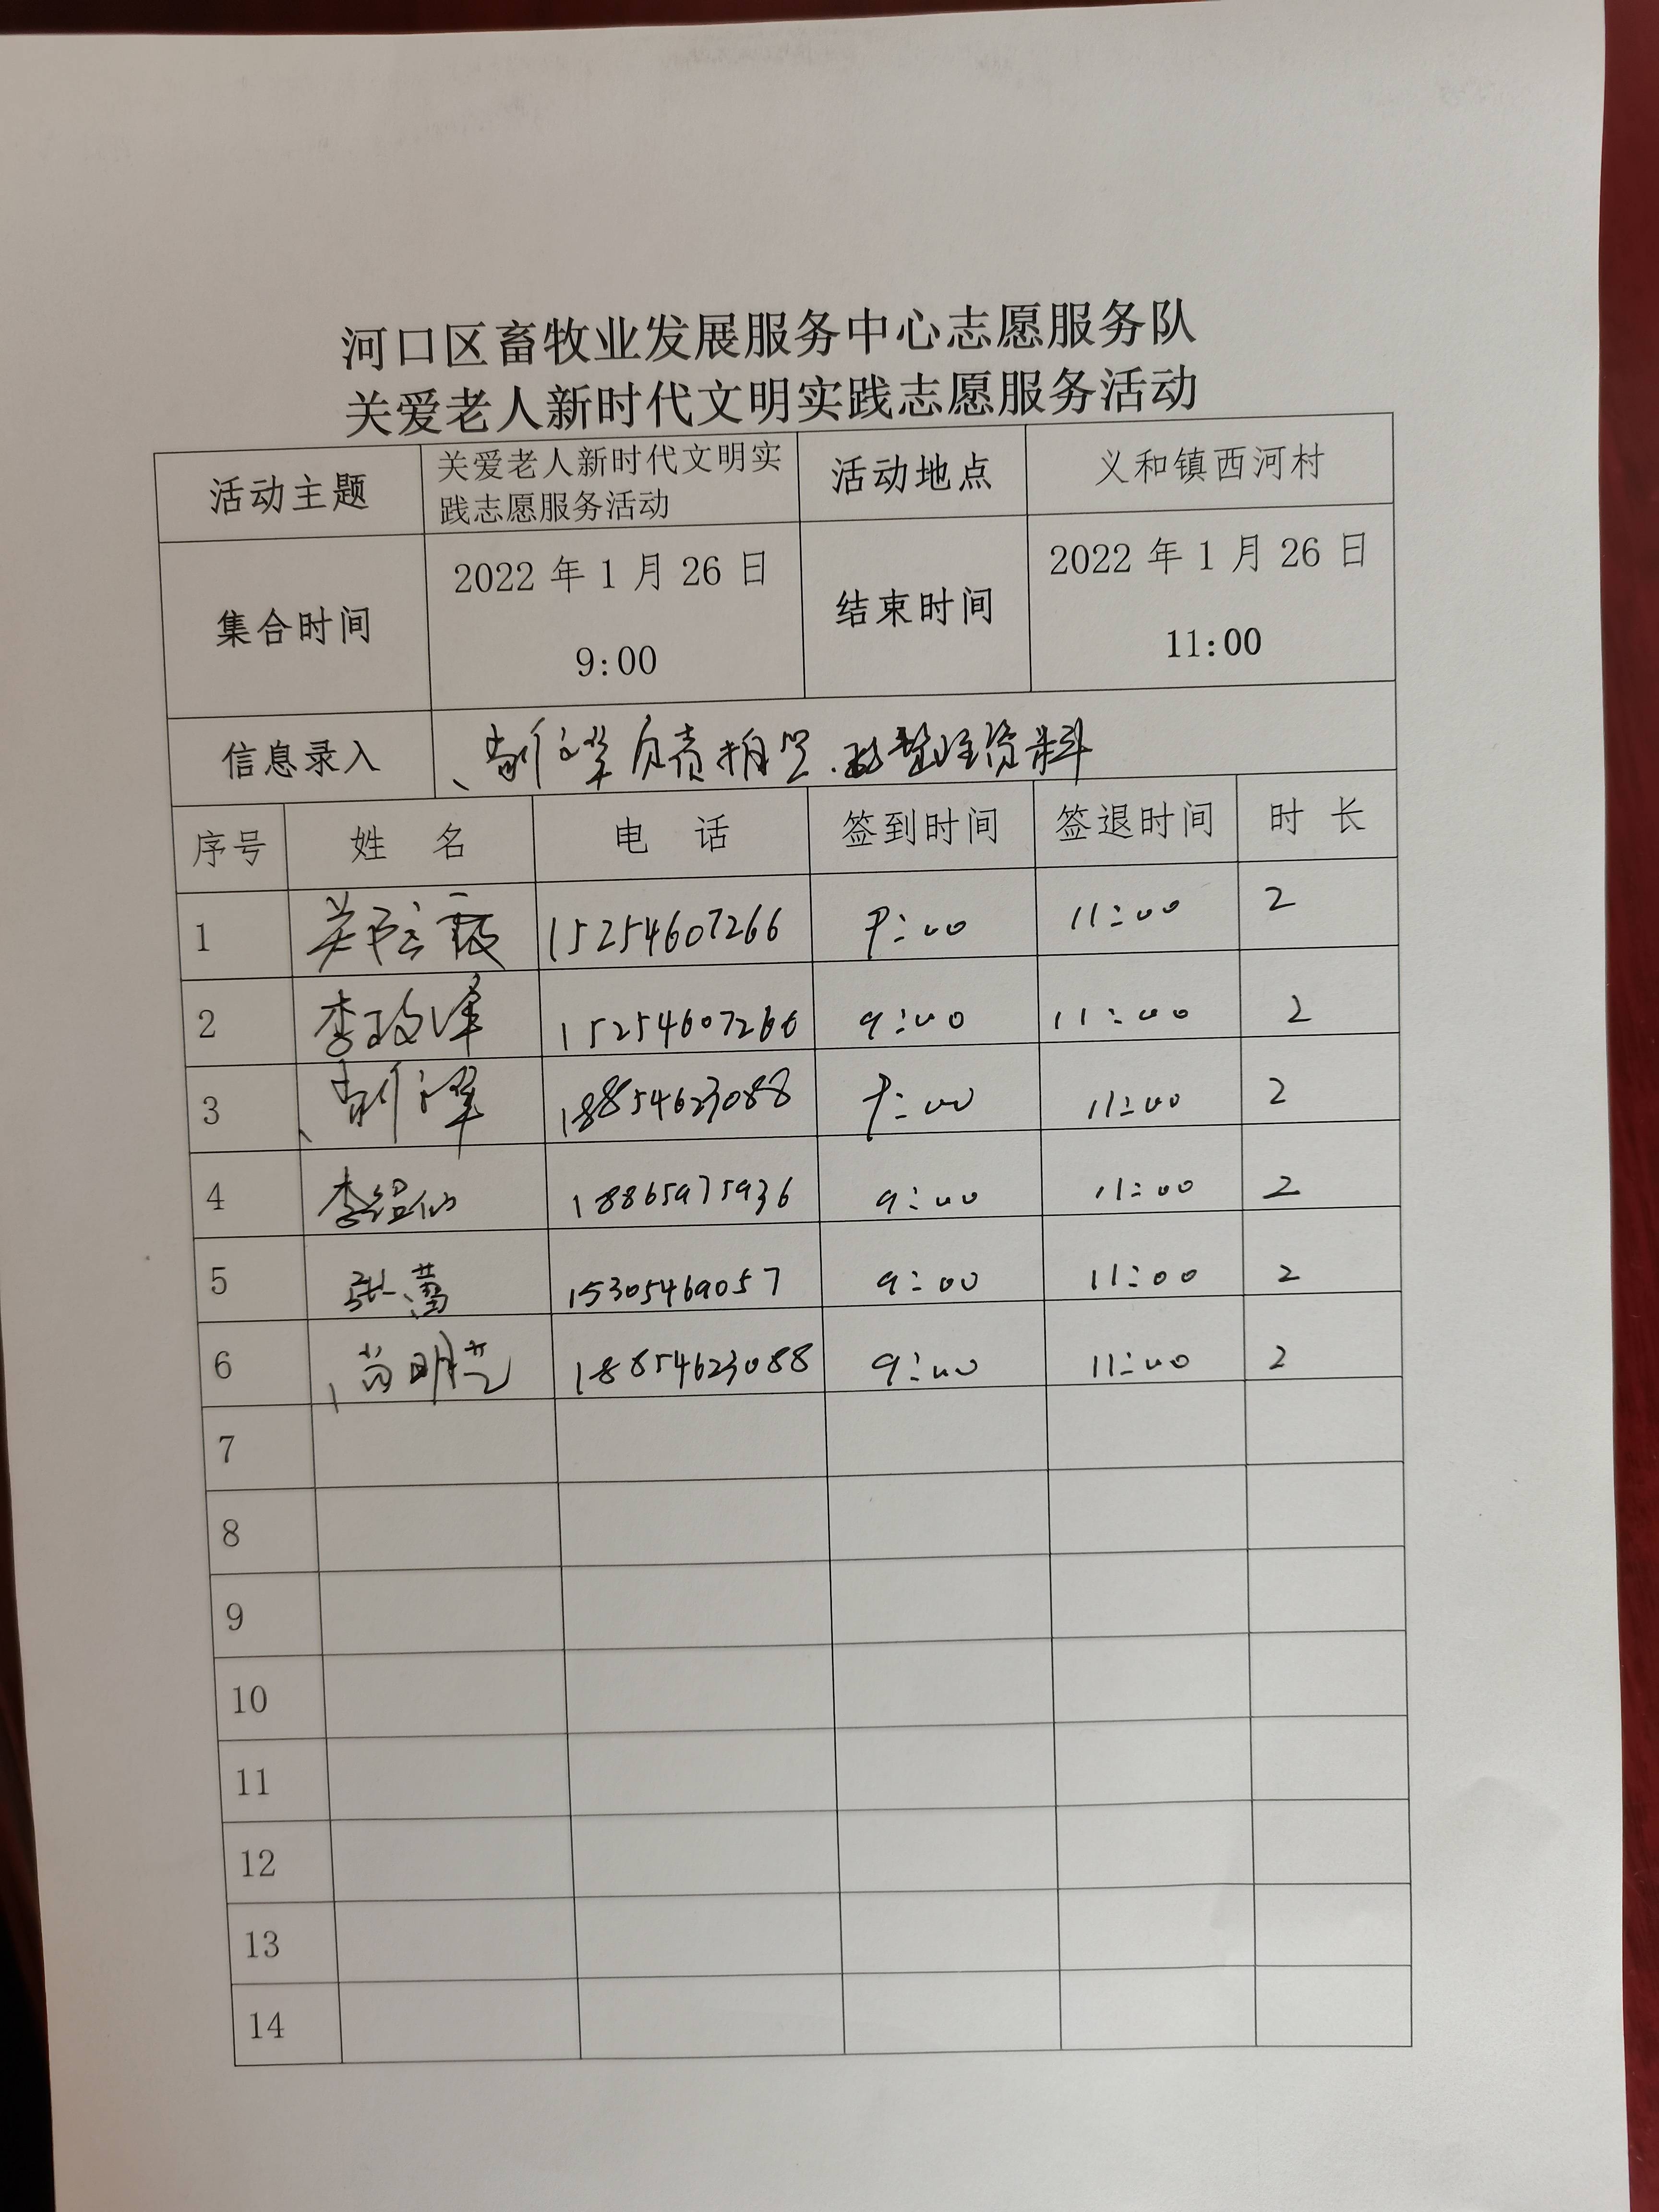 河口区畜牧业发展服务中心志愿服务队
关爱老人新时代文明实践志愿服务活动
活动主题 关爱老人新时代文明实 活动地点 义和镇西河村
践志愿服务活动
集合时间 2022 年 1 月 26 日 结束时间 2022 年 1 月 26 日
9:00 11:00
信息录入 负责拍照 整理资料
序号 姓 名 电 话 签到时间 签退时间 时 长
1 15254607266 9:00 11:00 2
2 李政泽 15254607266 9:00 11:00 2
3 18854623088 9:00 11:00 2
4 李绍仙 18865975936 9:00 11:00 2
5 张蕾 15305469057 9:00 11:00 2
6 尚明芝 18854623088 9:00 11:00 2
7
8
9
10
11
12
13
14